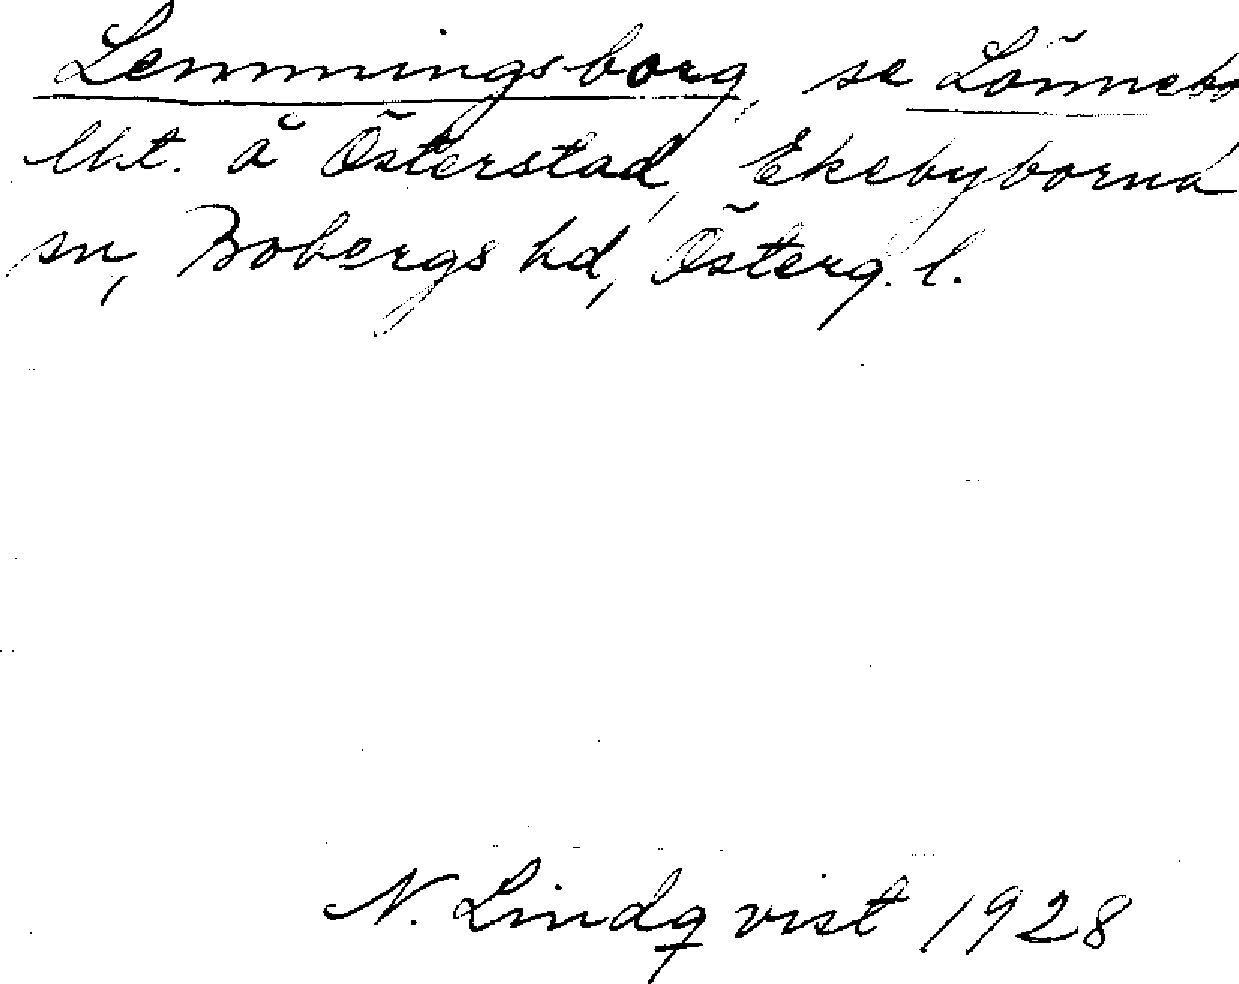 Lemmingsborg, se Lönnebo
Uht. å Österstad, Ekebyborna
sn, Bobergs hd, Österg. l.
N. Lindqvist 1928